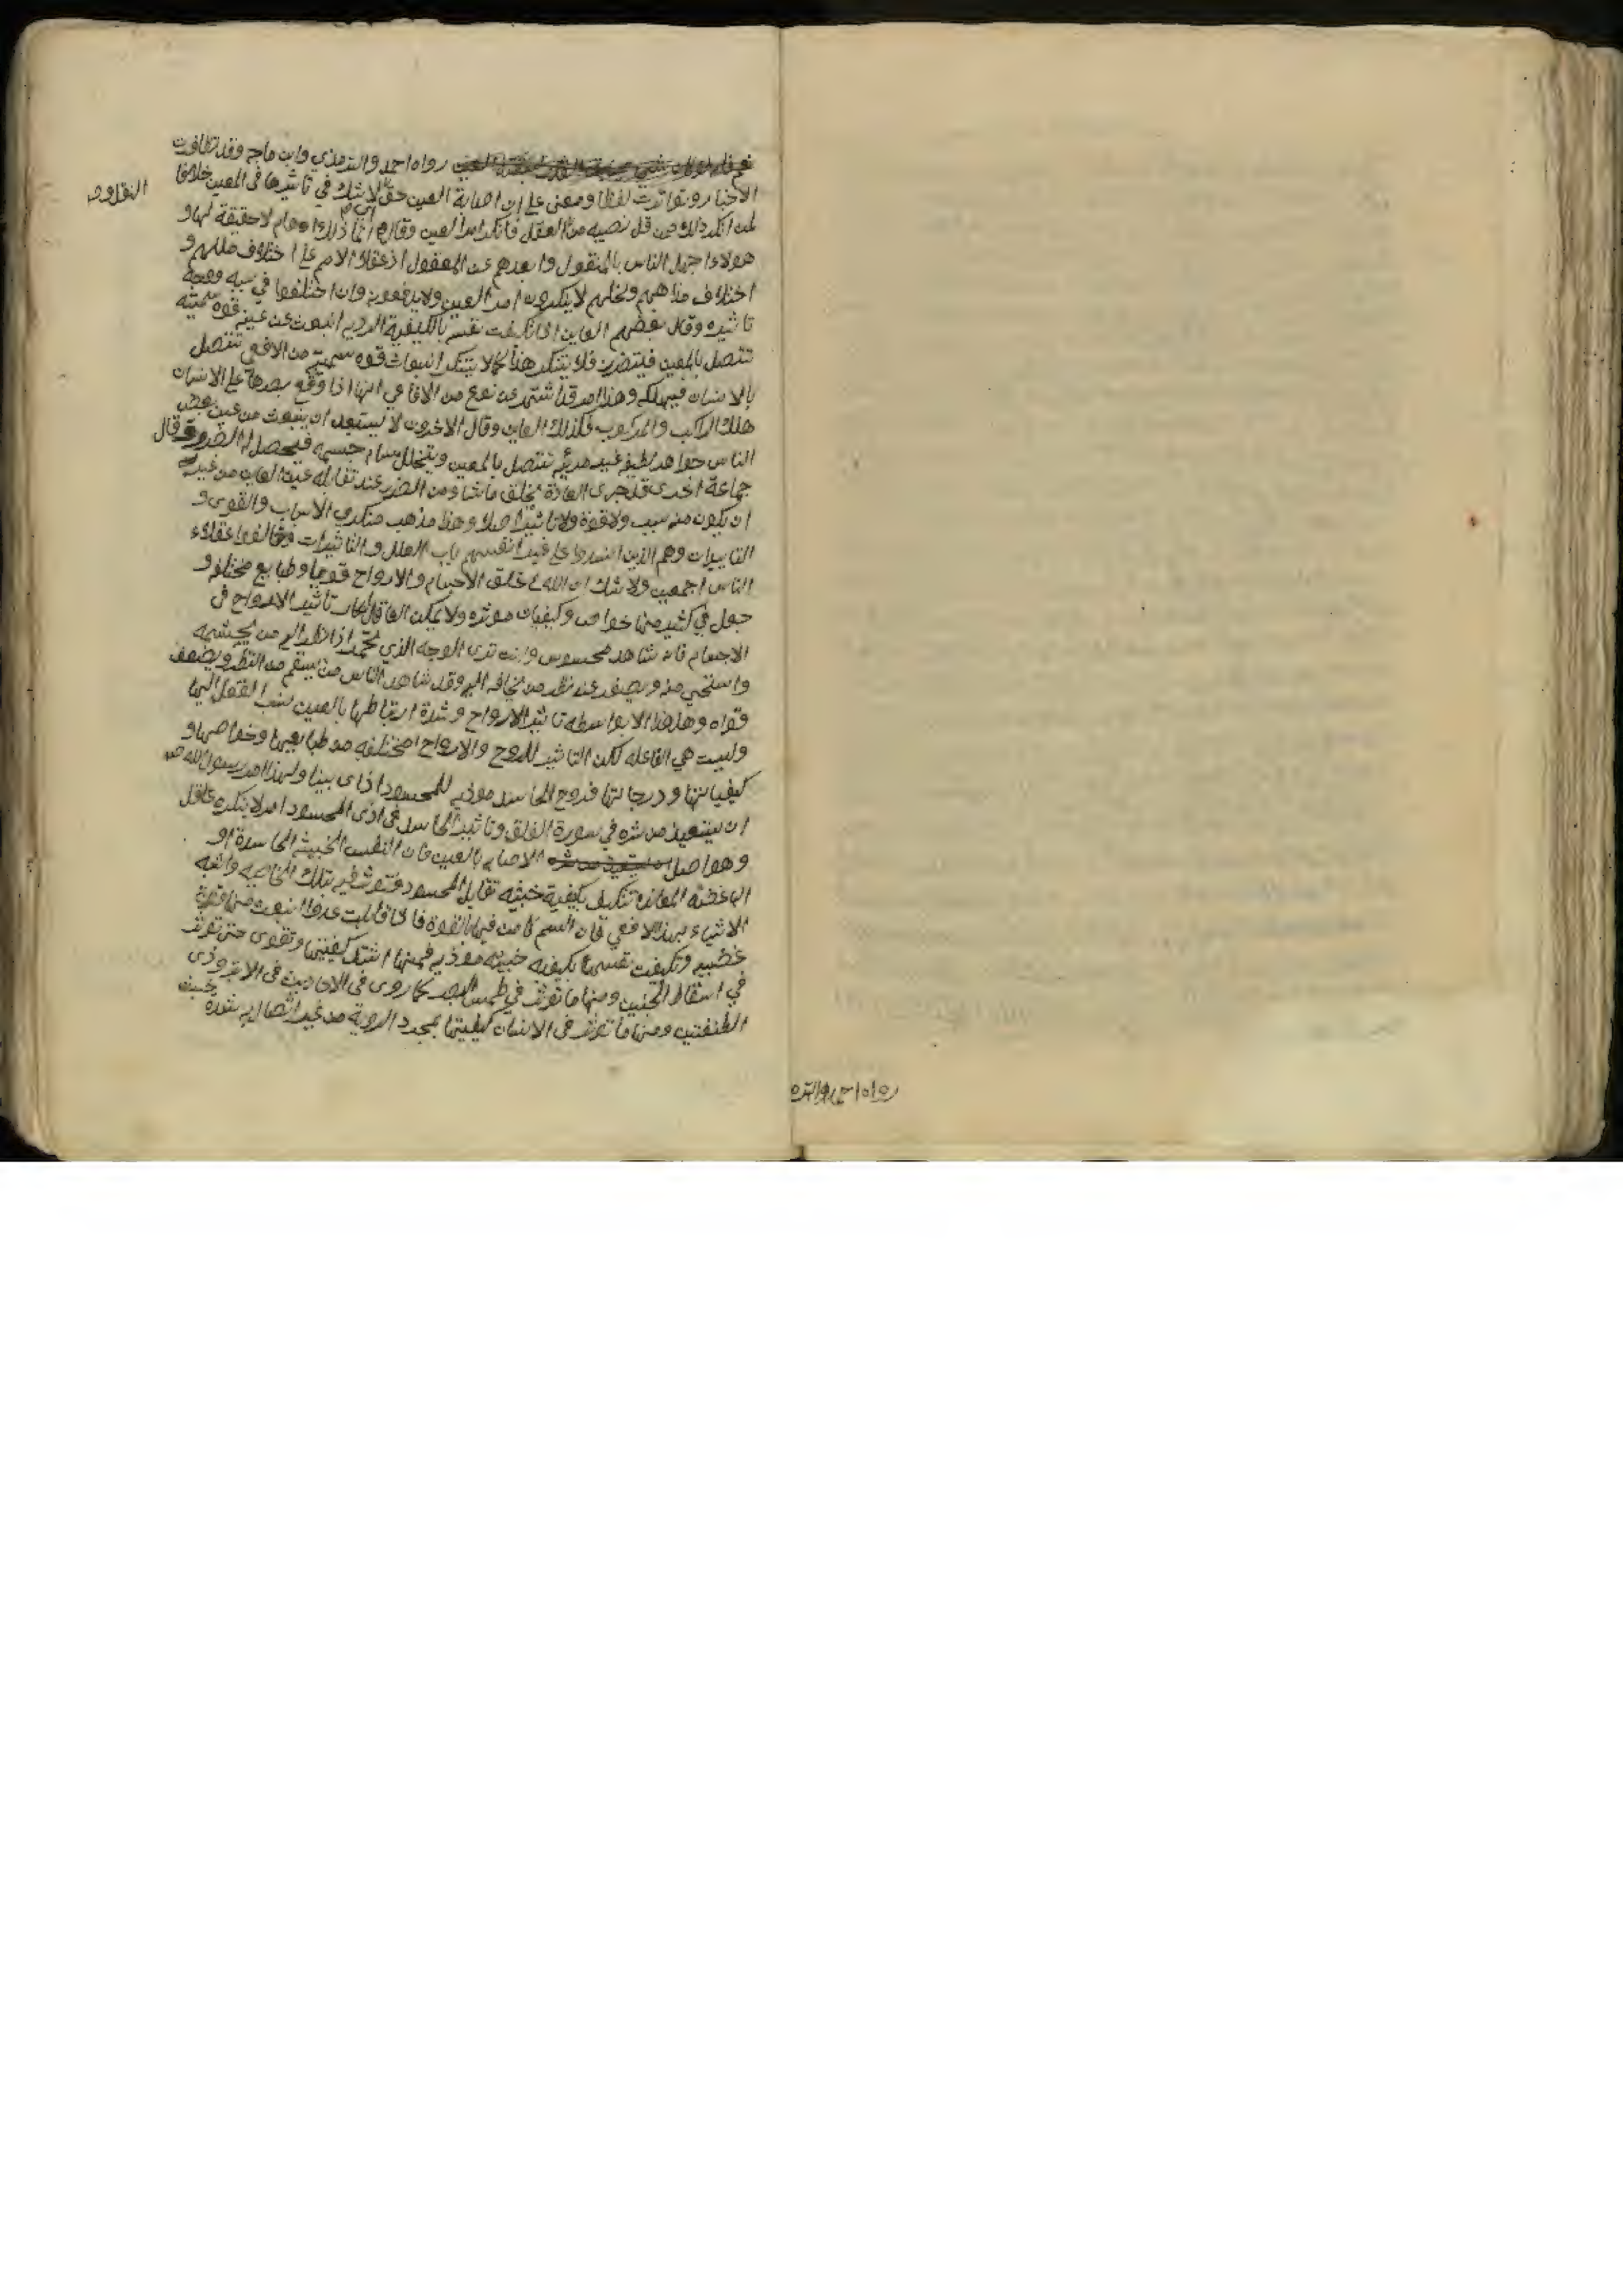 رواه احمد والترمذي وابن ماجه وقد تظافرت
الاخبار وتواترت لفظا ومعنى على ان اصابة العين حق لا شك في تاثيرها في المعين خلافا
لمن انكر ذلك من قل نصيبه من العقل فانكر امر العين وقالوا انما ذلك اوهام لا حقيقة لها و
هولاء اجهل الناس بالمنقول وابعدهم عن المعقول اذ عقلاء الامم على اختلاف مللهم و
اختلاف مذاهبهم ونحلهم لا ينكرون امر العين ولا يدفعونه وان اختلفوا في سببه ووجه
تاثيره وقال بعضهم العاين اذا تكيفت نفسه بالكيفية الرديه انبعث عن عينه قوه سميه
تتصل بالمعين فيتضرر فلا يتنكر هذا كما لا يتنكر انبعاث قوه سميه من الافعى تتصل
بالانسان فيهلك وهذا امر قد اشتهر عن نوع من الافاعي انها اذا وقع بصرها على الانسان
هلك الراكب والمركوب فكذلك العاين وقال الاخرون لا يستبعد ان ينبعث من عين بعض
الناس جواهر لطيفه غير مرئيه تتصل بالمعين ويتخلل مسام جسمه فيحصل له الضرر وقال
جماعة اخرى قد اجرى العادة بخلق ما شاء من الضرر عند تقابله عين العاين من غير
ان يكون منه سبب ولا قوة ولا تاثير اصلا وهذا مذهب منكري الاسباب والقوى و
التاثيرات وهم الذين انسدوا على انفسهم باب العلل والتاثيرات وخالفوا عقلاء
الناس اجمعين ولا شك ان الله خلق الاجسام والارواح قوى وطبايع مختلفه و
جعل في كثير منها خواص وكيفيات موثره ولا يمكن العاقل انكار تاثير الارواح في
الاجسام فانه شاهد محسوس وانت ترى الوجه الذي يحمر اذا نظر اليه من يحتشمه
واستحيى منه ويصفر عند نظر من يخافه اليه وقد شاهد الناس من يسقم من النظر ويضعف
قواه وهذا الا بواسطه تاثير الارواح وشدة ارتباطها بالعين نسب الفعل اليها
وليست هي الفاعله لكن التاثير للروح والارواح مختلفه في طبايعها وخواصها و
كيفياتها ودرجاتها فروح الحاسد موذيه للمحسود اذاى بينا ولهذا امر رسول الله ص
ان يستعيذ من شره في سورة الفلق وتاثير الحاسد في اذى المحسود امر لا ينكره عاقل
وهو اصل الاصابه بالعين فان النفس الخبيثه الحاسدة او
الباغضة تتكيف بكيفية خبيثه تقابل المحسود فتوثر فيه بتلك الخاصيه واشبه
الاشياء بهذا الافعى فان السم كامن فيها بالقوة فاذا قابلت عدوا انبعث منها قوة
غضبيه وتكيفت نفسها بكيفيه خبيثه موذيه فمنها اشتد كيفيتها وتقوى حتى توثر
في اسقاط الجنين ومنها ما توثر في طمس البصر كما روى في الاحاديث في الابتر وذى
الطفتين ومنها ما توثر في الانسان كيفيتها بمجرد الروية من غير اتصال به بشده